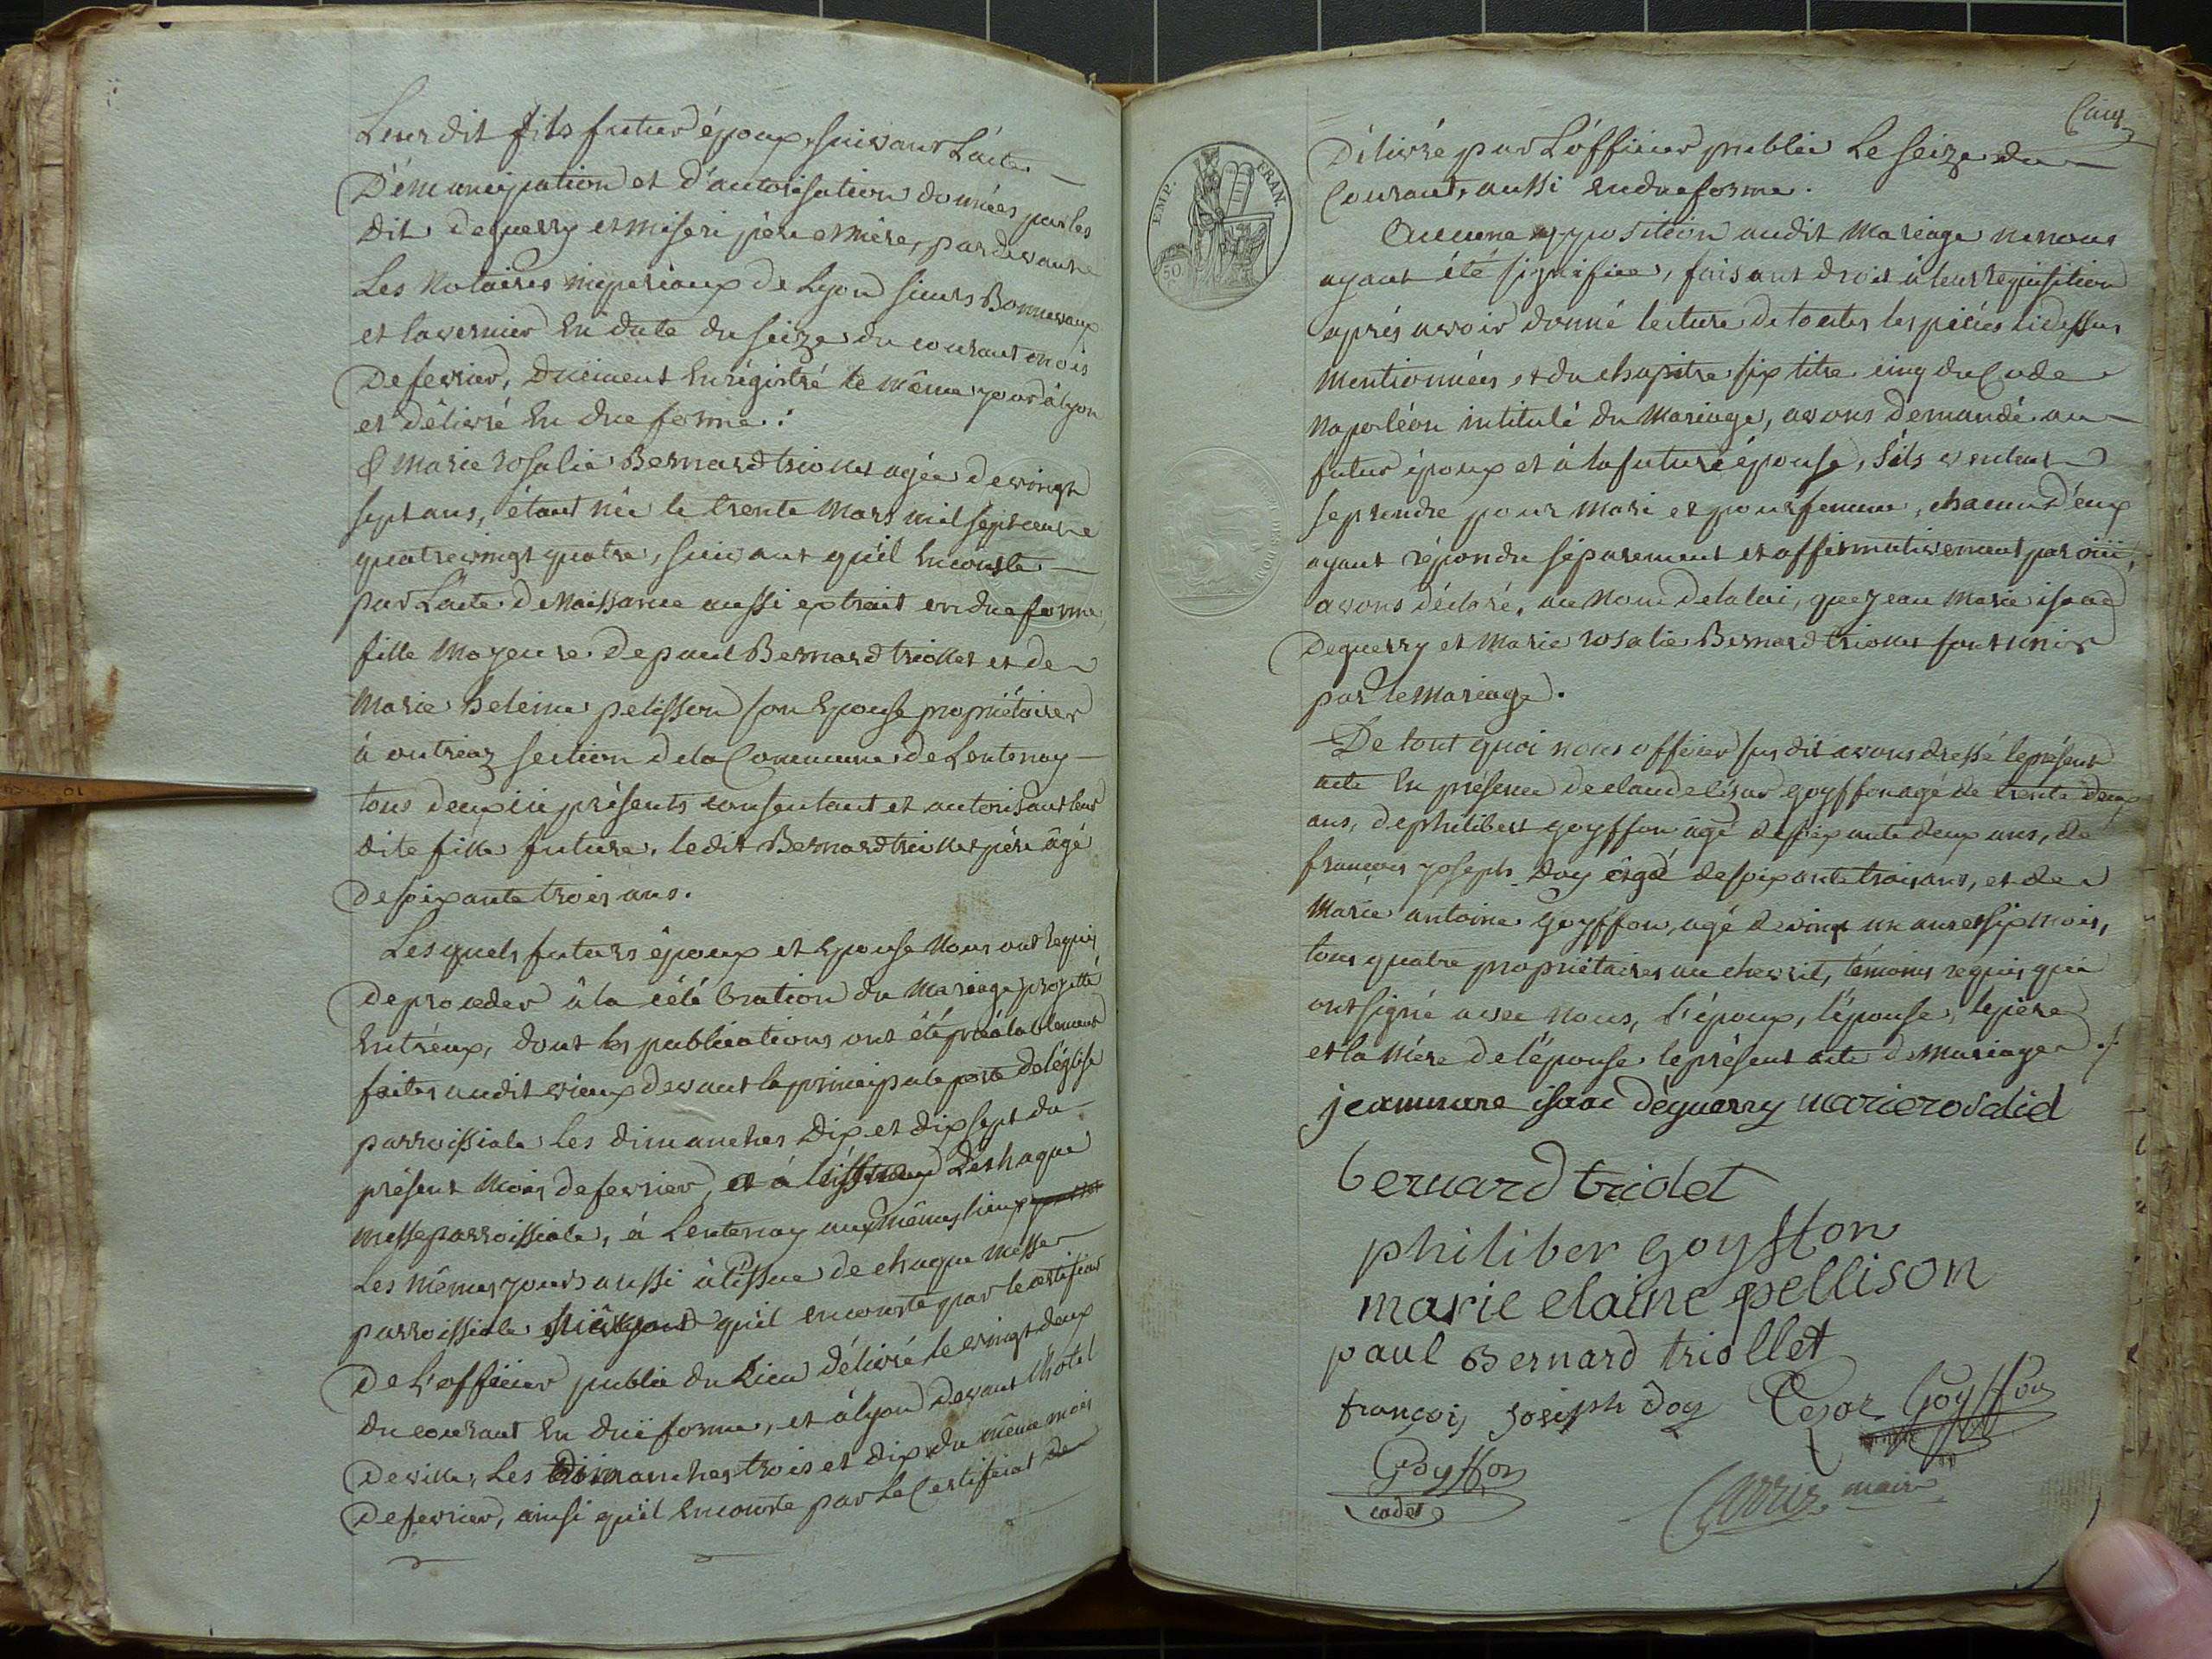 Leur dit fils futur époux, suivant L'acte
D'émancipation et d'autorisation données par les
dits deguerry et miseri père et mère, par devant
Les Notaires imperiaux de Lyon sieurs Bonnevaux
et lavernier En date du seize du courant mois
De fevrier, Dueiment Enrégistré le même jour à lyon
et délivré En due forme :
& marie rosalie Bernard triollet agée de vingt
sept ans, étant née le trente mars mil sept cent
quatrevingt quatre, suivant qu'il Enconste
par L'acte de Naissance aussi extrait en due forme,
fille Majeure de paul Bernard triollet et de
Marie heleine pelisson son Epouse propriétaires
à outriaz section de la Commune de Lentenay
tous deux ici présents consentant et autorisant leur
dite fille future. ledit Bernard triollet père âgé
de soixante trois ans.
Lesquels futurs époux et Epouse Nous ont requis
de proceder à la célébration du Mariage projetté
Entréux, dont les publications ont été préalablement
faites audit vieux devant la principale porte de l'église
parroissiale les dimanches Dix et dix sept du
présent Mois de fevrier, et à l'issue De chaque
messe parroissiale, à Lentenay aux mêmes lieux
Les mêmes jours aussi à l'issue de chaque Messe
parroissiale qu'il enconste par le certificat
De L'officier public du Lieu délivré le vingt deux
du courant En due forme, et à lyon devant l'hotel
De ville, Les Dimanches trois et dix du même mois
De fevrier, ainsi qu'il Enconste par Le Certificat de
Cinq
Délivré par L'officier public Le seize du
Courant, aussi En due forme.
Aucune opposition audit Mariage ne nous
ayant été signifiée, faisant droit à leur requisition
après avoir donné lecture de toutes les pièces ci dessus
Mentionnées, et du chapitre six titre cinq du Code
Napoléon intitulé du Mariage, avons demandé au
futur époux et à la future épouse, s'ils veulent
se prendre pour Mari et pour femme, chacun d'eux
ayant répondu séparement et affirmativement par oui,
avons déclaré, au Nom de la loi, que jean Marie isaac
Deguerry et Marie rosalie Bernard triollet sont unis
par le Mariage.
De tout quoi nous officier susdit avons dressé le présent
acte En présence de claude César goyffon agé de trente deux
ans, de philibert goyffon âgé de soixante deux ans, de
françois joseph doy âgé de soixante trois ans, et de
Marie antoine goyffon, agé de vingt un ans et six mois,
tous quatre propriétaires au chevril, témoins requis qui
ont signé avec Nous, l'époux, l'épouse, le père
et la Mère de l'épouse le présent acte de Mariage ./.
jeanmarie isaac déguerry marierosalid
bernard triolet
philiber goyffon
marie elaine pellison
paul Bernard triollet
françois Joseph doy Cesar Goyffon
Goyffon
cadet
Carrier maire
EMP. FRAN.
50